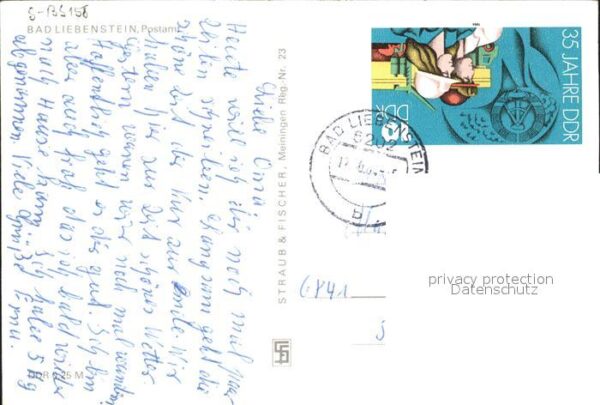 S-BS158
BAD LIEBENSTEIN, Postamt
Liebe Oma!
Heute will ich dir noch mal
schreiben. Langsam geht die
schöne Zeit der Kur zur Ende. Wir
haben hier zur Zeit schönes Wetter
Gestern waren wir noch mal wandern
Hoffentlich geht es dir gut. Ich bin
aber auch froh das ich bald wieder
nach Hause kann. Ich habe 5 kg
abgenommen. Viele Grüße
DDR 0,25 M
STRAUB & FISCHER, Meiningen Rbg.-Nr. 23
35 JAHRE DDR
DDR
BAD LIEBENSTEIN
6202
6841
privacy protection
Datenschutz